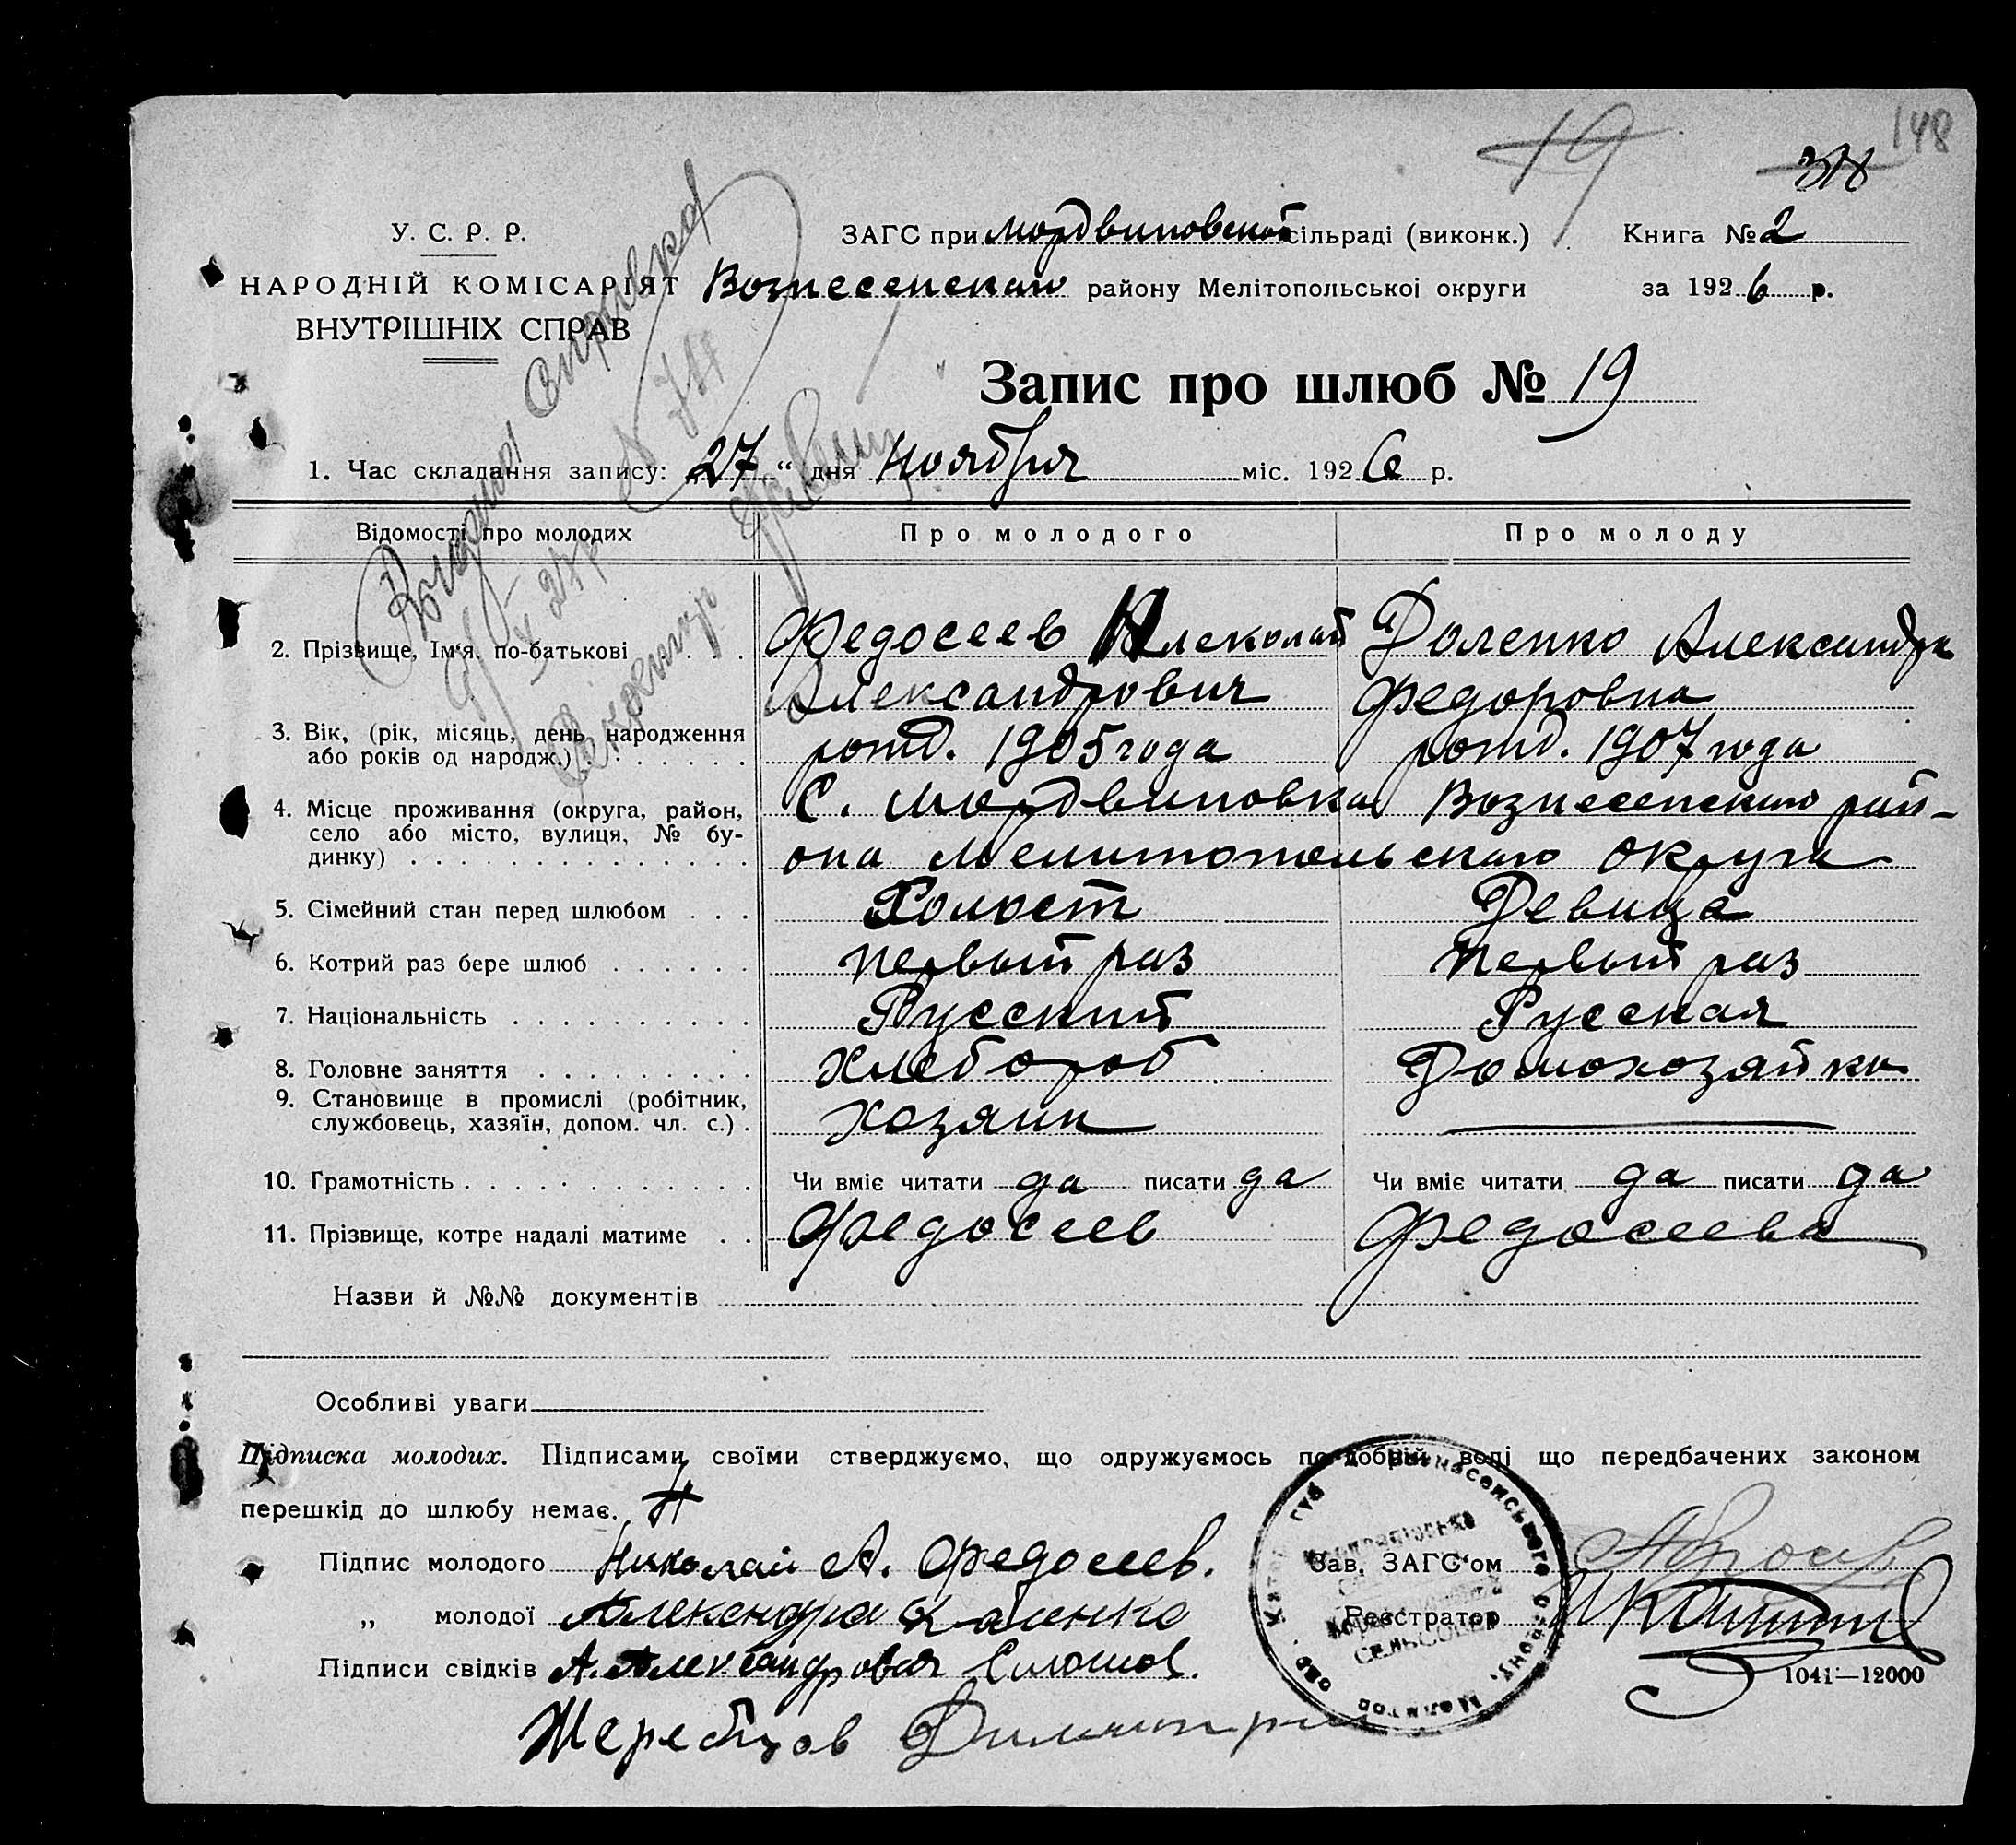 148
19
У. С. Р. Р.
НАРОДНІЙ КОМІСАРІЯТ
ВНУТРІШНІХ СПРАВ
ЗАГС при Мордвиновской сільраді (виконк.)
Книга № 2
Вознесенского району Мелітопольської округи
за 1926 р.
Запис про шлюб № 19
Выдана справка
1. Час складання запису: „27“ дня Ноября міс. 1926 р.
Відомості про молодих
Про молодого
Про молоду
2. Прізвище, Ім'я, по-батькові . . .
Федосеев Николай
Александрович
Доленко Александра
Федоровна
3. Вік, (рік, місяць, день народження
або років од народж.) . . . . . . .
рожд. 1905 года
рожд. 1907 года
4. Місце проживання (округа, район,
село або місто, вулиця, № бу-
динку) . . . . . . . . . . . . . .
С. Мордвиновка Вознесенского рай-
она Мелитопольского округа
5. Сімейний стан перед шлюбом . . .
Холост
Девица
6. Котрий раз бере шлюб . . . . . .
первый раз
первый раз
7. Національність . . . . . . . . . .
Русский
Русская
8. Головне заняття . . . . . . . . .
Хлебороб
Домохозяйка
9. Становище в промислі (робітник,
службовець, хазяїн, допом. чл. с.) .
Хозяин
10. Грамотність . . . . . . . . . . . .
Чи вміє читати да писати да
Чи вміє читати да писати да
11. Прізвище, котре надалі матиме . .
Федосеев
Федосеева
Назви й №№ документів
Особливі уваги
Підписка молодих. Підписами своїми стверджуємо, що одружуємось по добрій волі що передбачених законом
перешкід до шлюбу немає.
Підпис молодого Николай А. Федосеев.
Зав. ЗАГС'ом
„ молодої Александра
Реєстратор
Підписи свідків А. Александрович
1041—12000
Жеребцов Димитрий